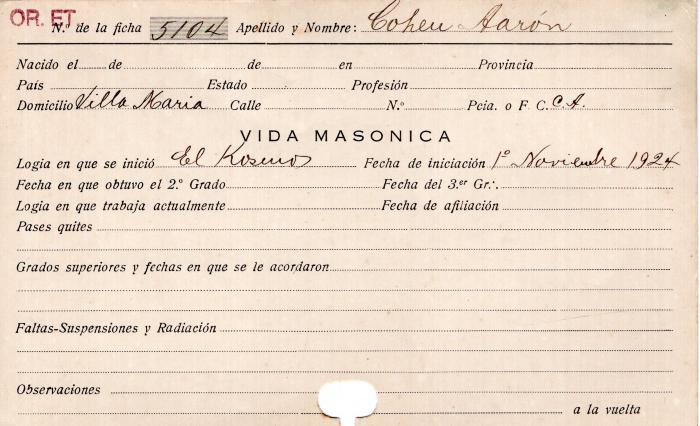 OR. ET.
N.º de la ficha 5104 Apellido y Nombre: Cohen Aarón
Nacido el de de en Provincia
País Estado Profesión
Domicilio Villa Maria Calle N.º Pcia. o F. C. C.A.
VIDA MASONICA
Logia en que se inició El Kosmos Fecha de iniciación 1º Noviembre 1924
Fecha en que obtuvo el 2.º Grado Fecha del 3.er Gr:.
Logia en que trabaja actualmente Fecha de afiliación
Pases quites
Grados superiores y fechas en que se le acordaron
Faltas-Suspensiones y Radiación
Observaciones
a la vuelta